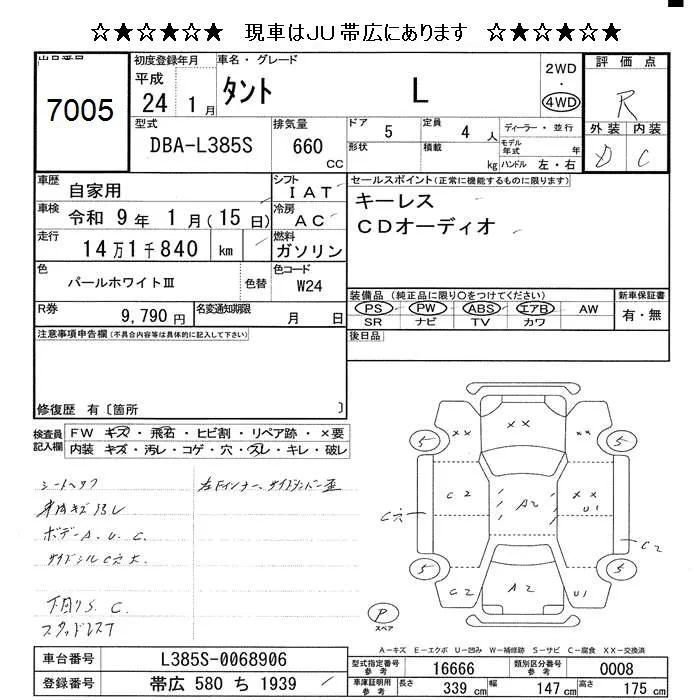 ☆★☆★☆★ 現車はJU帯広にあります ☆★☆★☆★
出品番号
7005
初度登録年月
平成
24 1月
車名・グレード
タント L
2WD
・
4WD
評価点
R
外装 内装
D C
型式
DBA-L385S
排気量
660
CC
ドア 5
定員 4 人
形状
積載 kg
ディーラー・並行
モデル年式 年
ハンドル 左・右
車歴
自家用
シフト
IAT
車検
令和 9年 1月(15日)
冷房
AC
走行
14万1千840 km
燃料
ガソリン
色
パールホワイトⅢ
色替
色コード
W24
R券
9,790円
名変通知期限
月 日
セールスポイント(正常に機能するものに限ります)
キーレス
CDオーディオ
装備品(純正品に限り○をつけてください)
PS PW ABS エアB AW
SR ナビ TV カワ
新車保証書
有・無
後日品
注意事項申告欄(不具合内容等は具体的に記入して下さい)
修復歴 有〔箇所 〕
検査員記入欄
FW キズ・飛石・ヒビ割・リペア跡・×要
内装 キズ・汚レ・コゲ・穴・スレ・キレ・破レ
ボデーA.U.C.
サイドシルC穴大
下回りS.C.
スタッドレス7
××
5 5
C2 ××
A2 U1
C穴
C2
5 5
C2 A2 U1
P
スペア
A-キズ E-エクボ U-凹み W-補修跡 S-サビ C-腐食 XX-交換済
車台番号 L385S-0068906
登録番号 帯広 580 ち 1939
型式指定番号参考 16666
類別区分番号参考 0008
車庫証明用参考 長さ 339cm 幅 147cm 高さ 175cm